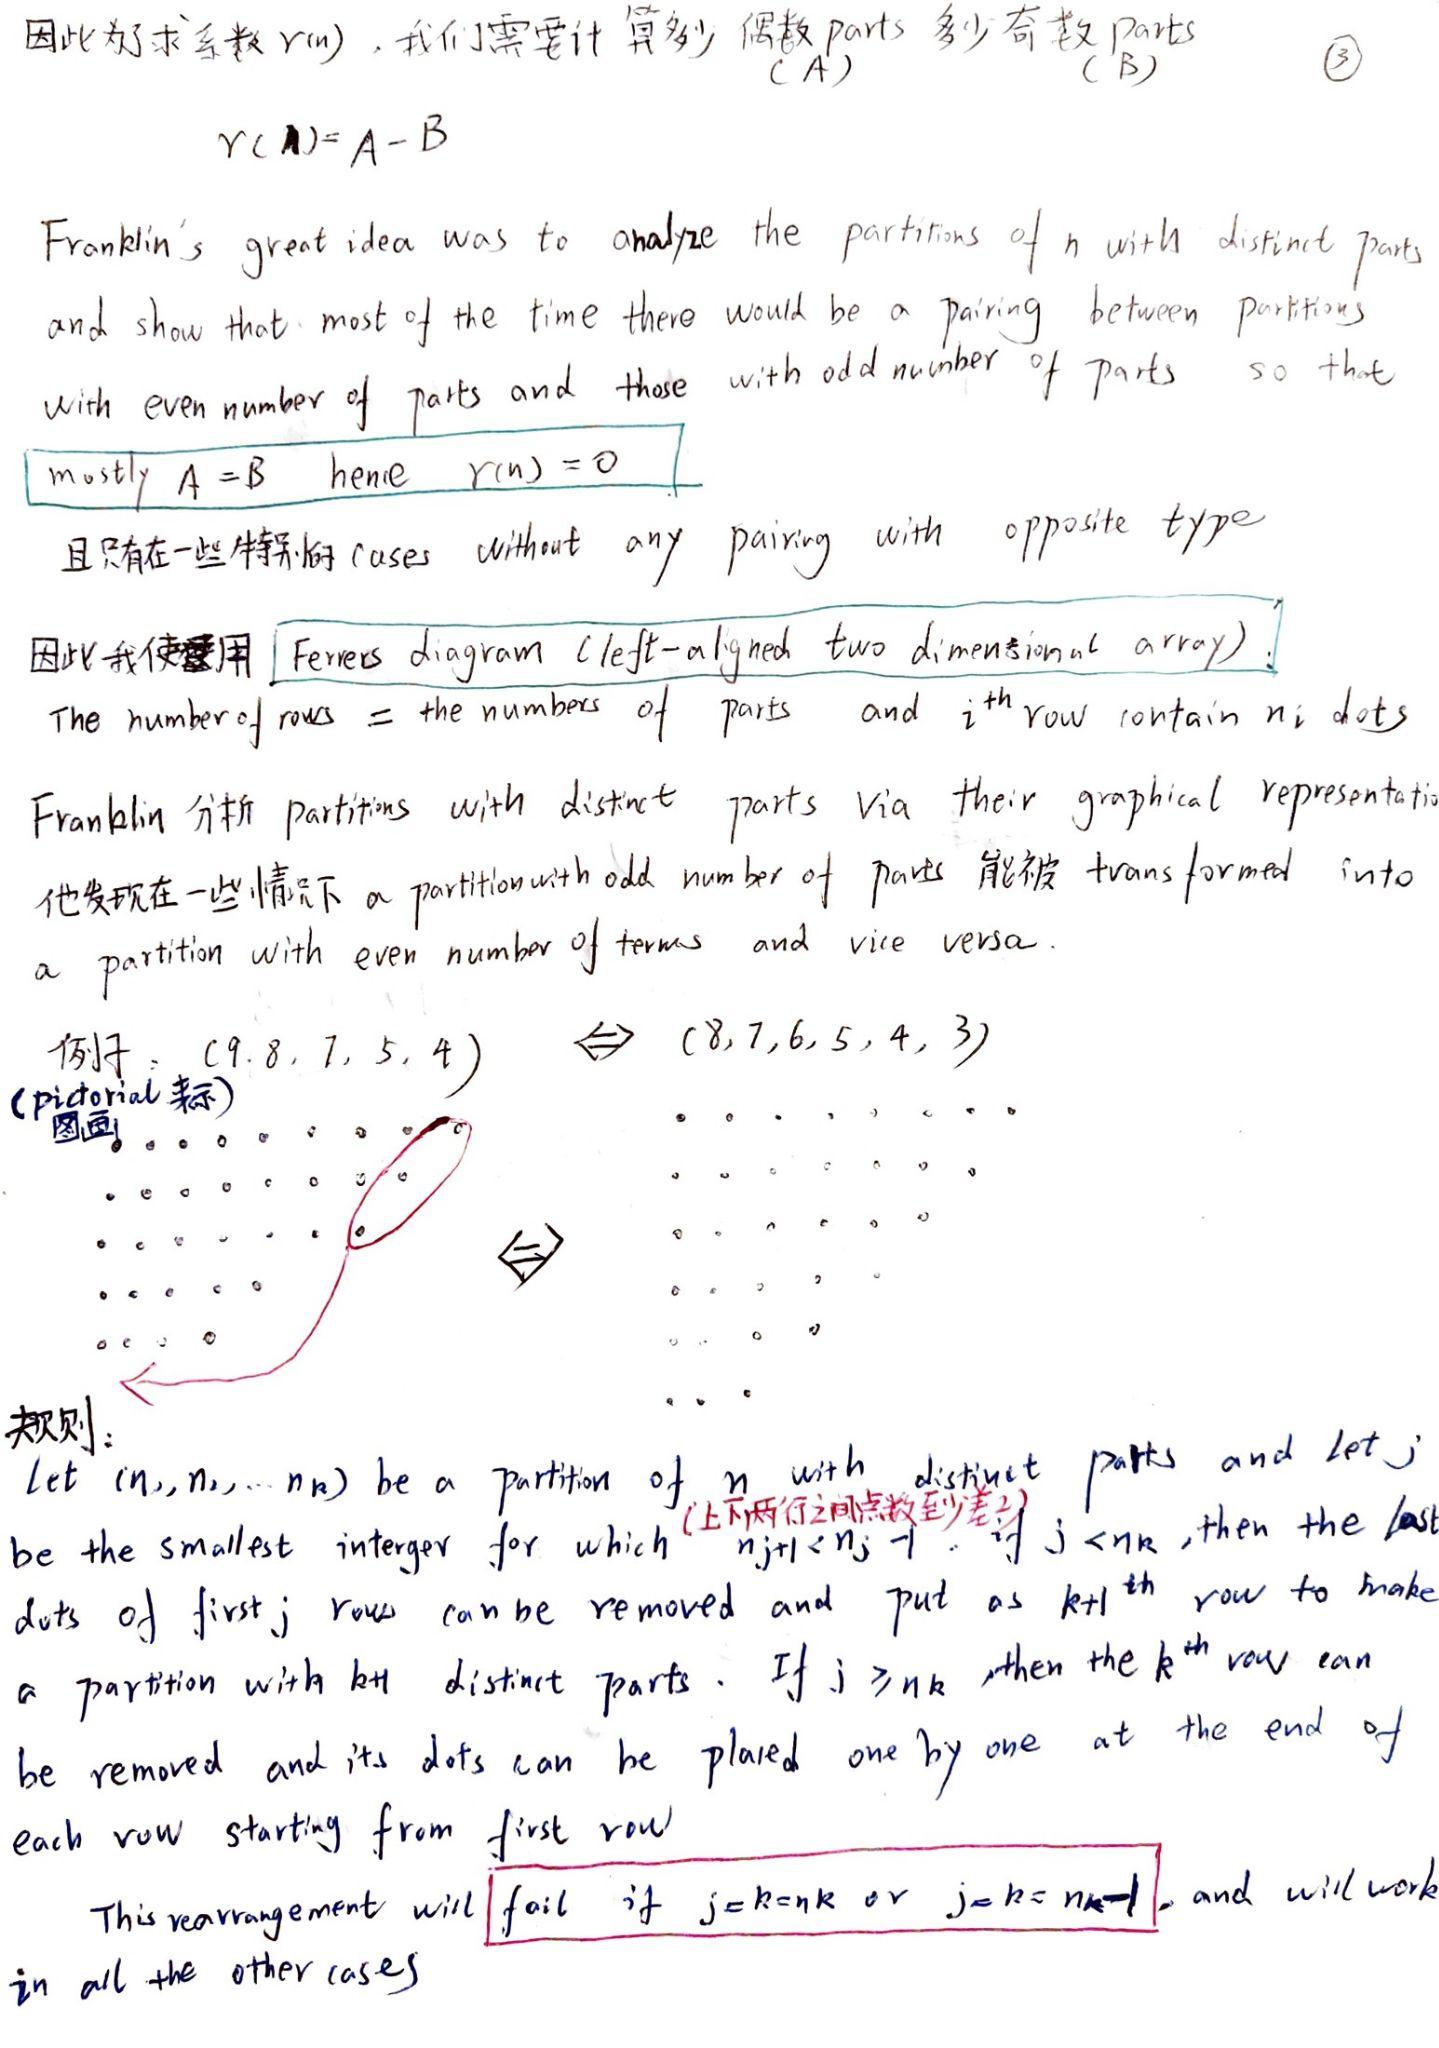 因此为了求系数 r(n)，我们需要计算多少偶数 parts 多少奇数 parts
(A) (B) ③
r(n) = A - B
Franklin's great idea was to analyze the partitions of n with distinct parts
and show that most of the time there would be a pairing between partitions
with even number of parts and those with odd number of parts so that
mostly A = B hence r(n) = 0
且只有在一些特别的 cases without any pairing with opposite type
因此我使用 Ferrers diagram (left-aligned two dimensional array).
The number of rows = the numbers of parts and i^th row contain n_i dots
Franklin 分析 partitions with distinct parts via their graphical representatio
他发现在一些情况下 a partition with odd number of parts 能被 transformed into
a partition with even number of terms and vice versa.
例子: (9, 8, 7, 5, 4) ⇔ (8, 7, 6, 5, 4, 3)
(pictorial 表示)
图画
⇔
规则:
Let (n₁, n₂, ... n_k) be a partition of n with distinct parts and let j
(上下两行之间点数至少差2)
be the smallest interger for which n_{j+1} < n_j - 1. if j < n_k, then the last
dots of first j rows can be removed and put as k+1^th row to make
a partition with k+1 distinct parts. If j ≥ n_k, then the k^th row can
be removed and its dots can be placed one by one at the end of
each row starting from first row
This rearrangement will fail if j = k = n_k or j = k = n_k - 1, and will work
in all the other cases